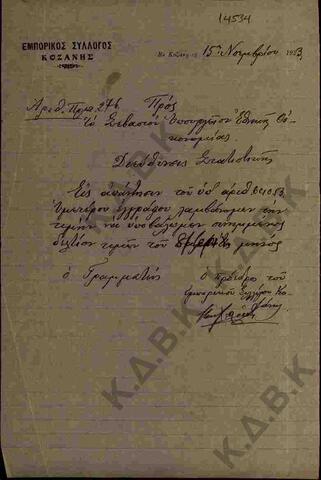 14534
ΕΜΠΟΡΙΚΟΣ ΣΥΛΛΟΓΟΣ
ΚΟΖΑΝΗΣ
Εν Κοζάνη τη 15η Νοεμβρίου 1933
Αριθ. Πρωτ. 276
Πρός
Το Σεβαστόν Υπουργείον Εθνικής Οι
κονομίας
Διεύθυνσις Στατιστικής
Εις απάντησιν του υπ' αριθ
Υμετέρου εγγράφου λαμβάνομεν την
τιμήν να υποβάλωμεν συνημμένως
δελτίον τιμών του μηνός
Ο Γραμματεύς
Ο πρόεδρος του
Εμπορικού Συλλόγου Κο
ζάνης
Κ.Δ.Β.Κ